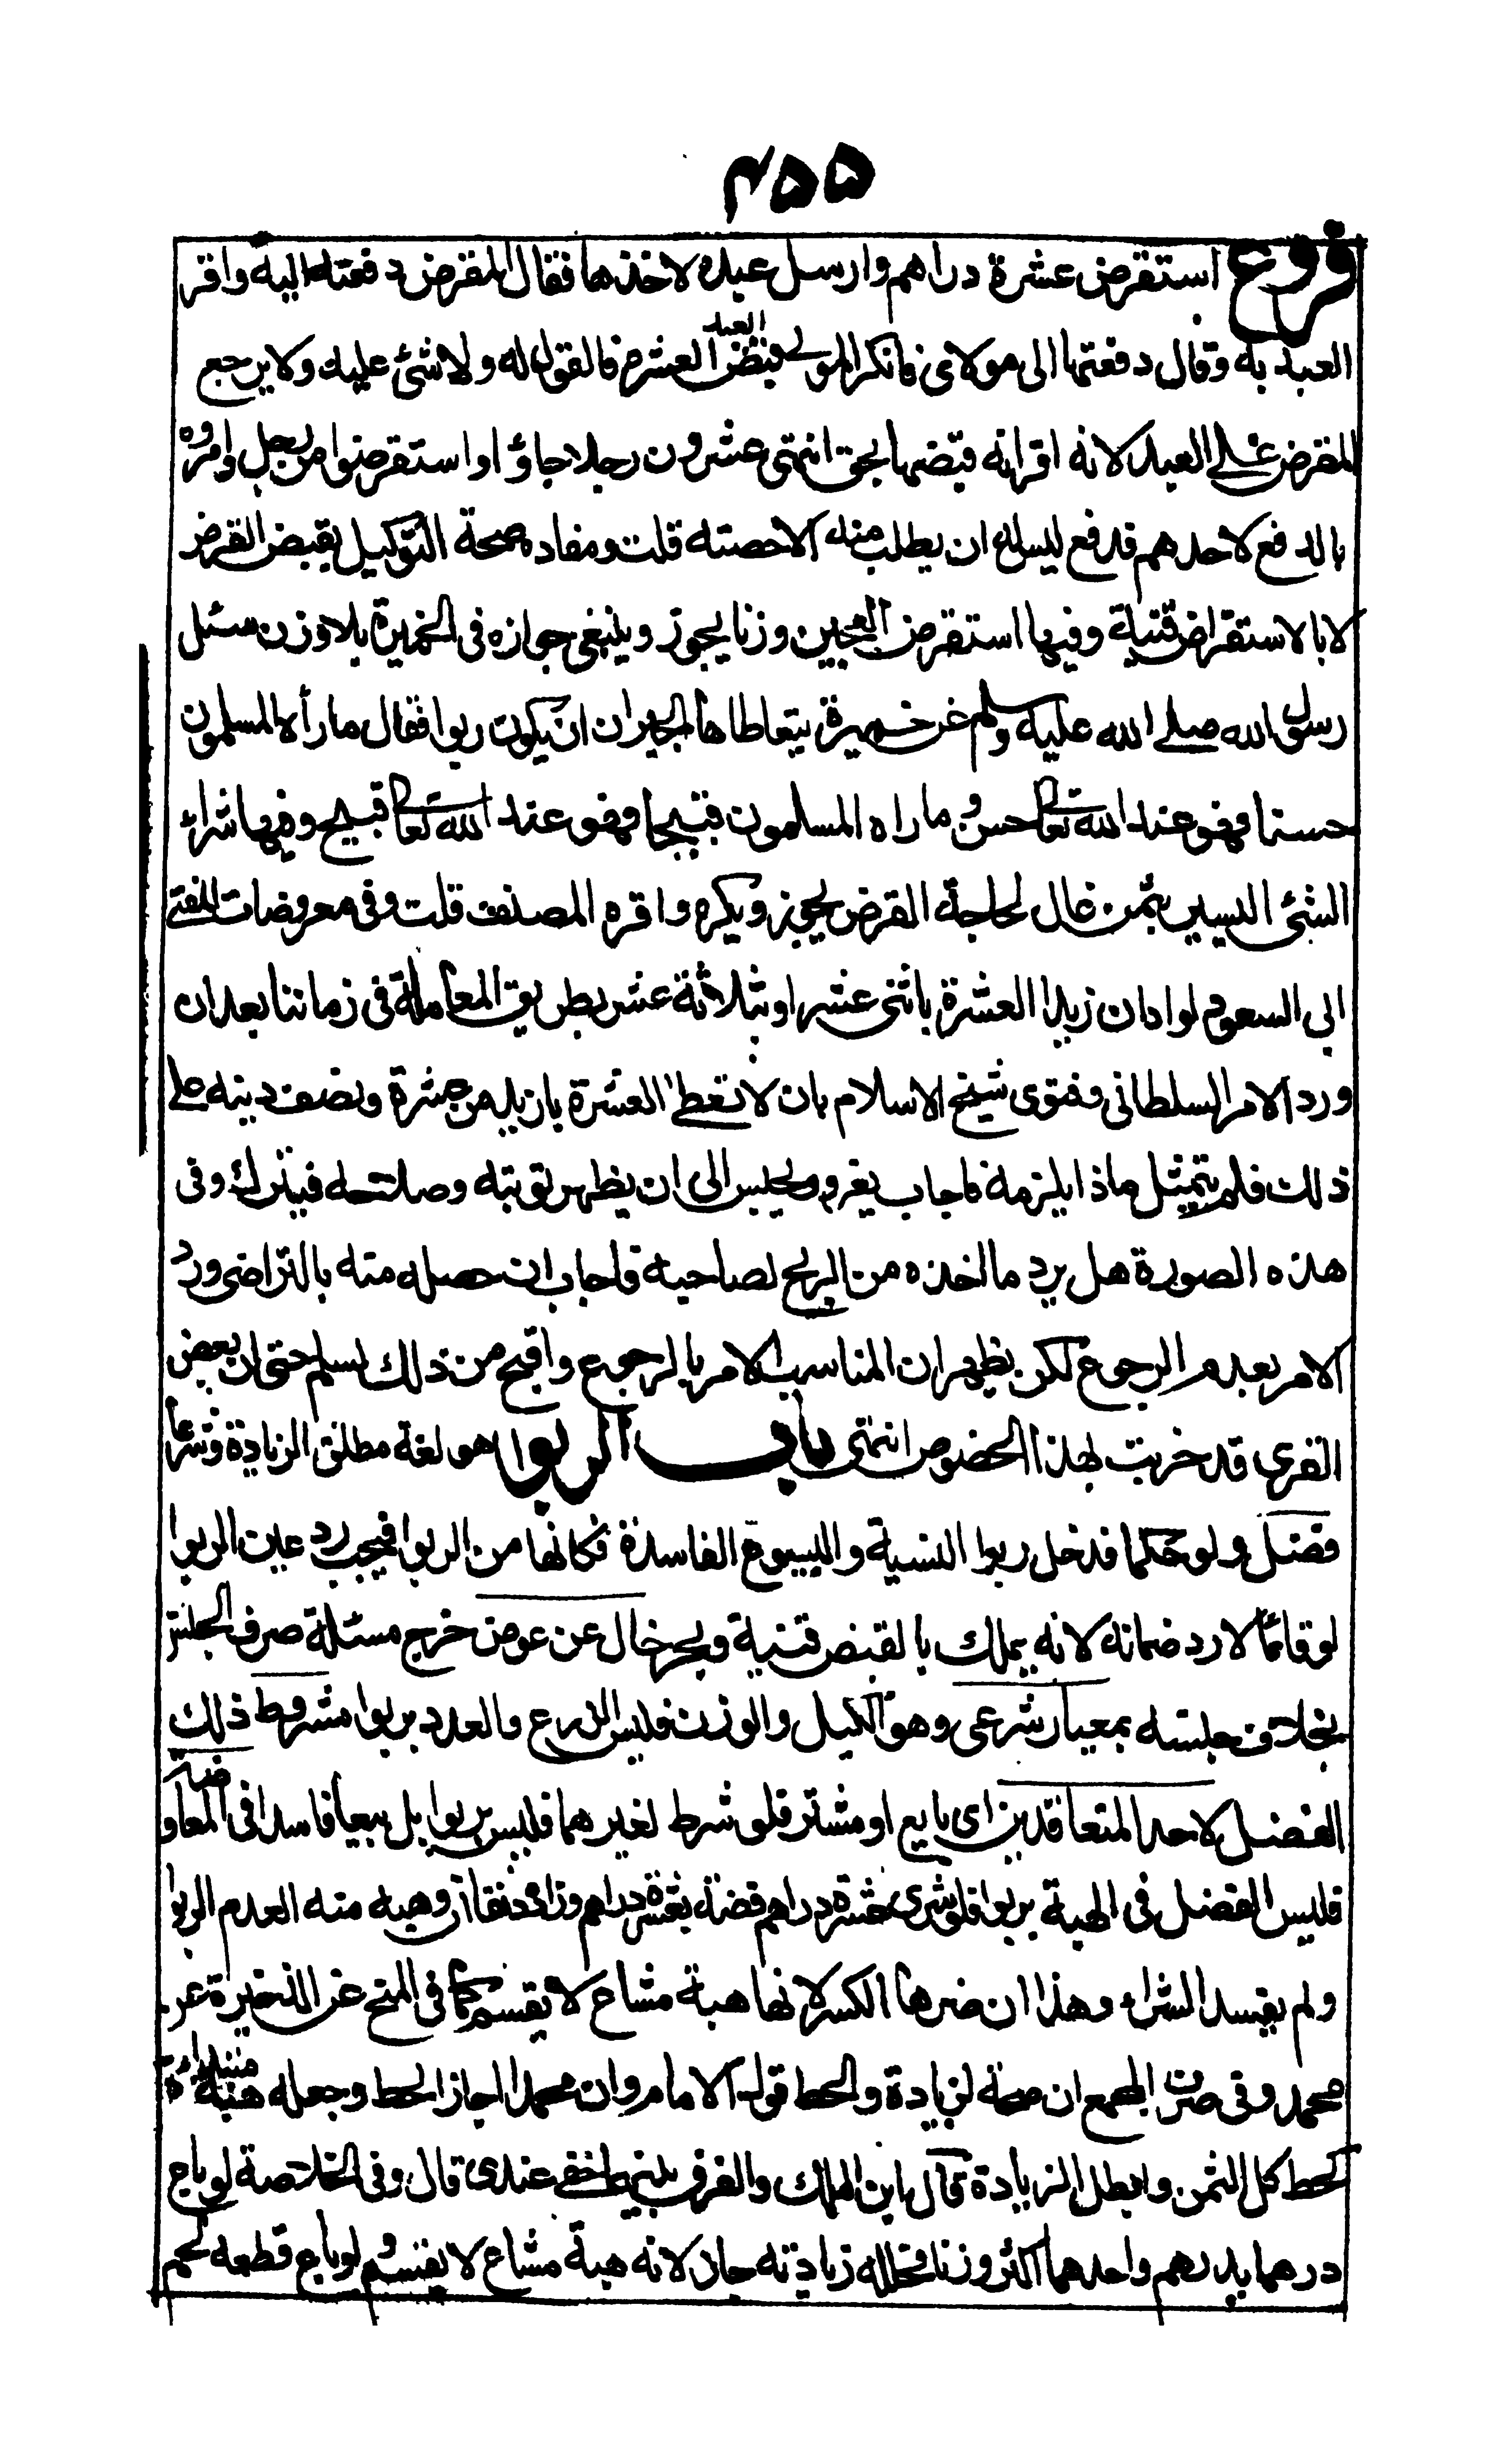 ۴۵۵
فروع استقرض عشرة دراهم وارسل عبده لاخذها فقال المقرض دفعته اليه واقر
العبد به وقال دفعتها الى مولاى فانكر المولى قبض العبد العشرة فالقول له ولا شئ عليه ولا يرجع
المقرض على العبد لانه اقرانه قبضها بحق انتهى عشرون رجلا جاؤ اواستقرضوا من رجل وامروه
بالدفع لاحدهم فدفع ليس له ان يطلب منه الا حصته قلت ومفاده صحة التوكيل بقبض القرض
لا بالاستقراض قنية وفيها استقرض العجين وزنا يجوز وينبغى جوازه فى الخميرة بلا وزن سئل
رسول الله صلى الله عليه وسلم عن خميرة يتعاطاها الجيران ان يكون ربوا فقال ما رأه المسلمون
حسنا فهو عند الله تعالى حسن وما راه المسلمون قبيحا فهو عند الله تعالى قبيح وفيها شراء
الشئ اليسير بثمن غال لحاجة القرض يجوز ويكره واقره المصنف قلت وفى معروضات المفتى
ابى السعود لو ادان زيد العشرة باثنى عشر او بثلاثة عشر بطريق المعاملة فى زماننا بعد ان
ورد الامر السلطانى وفتوى شيخ الاسلام بان لا تعطى العشرة بازيد من عشرة ونصف دينه على
ذلك فلم يتمثل ماذا يلزمه فاجاب يعزر ويحبس الى ان يظهر توبته وصلاحه فيترك وفى
هذه الصورة هل يرد ما اخذه من الربح لصاحبه فاجاب ان حصله منه بالتراضى ورد
الامر بعدم الرجوع لكن يظهر ان المناسب الامر بالرجوع واقبح من ذلك السلم حتى ان بعض
القرى قد خربت لهذا الخصوص انتهى باب الربوا هو لغة مطلق الزيادة وشرعا
فضل ولو حكما فدخل ربوا النسية والبيوع الفاسدة فكانها من الربوا فيجب رد عين الربوا
لو قائما لا رد ضمانه لانه يملك بالقبض قنية وبحر خال عن عوض خرج مسئلة صرف الجنس
بخلاف جنسه بمعيار شرعى وهو الكيل والوزن فليس الذرع والعدد بربوا مشروط ذلك
الفضل لاحد المتعاقدين اى بايع او مشتر فلو شرط لغيرهما فليس بربوا بل بيعا فاسدا فى المعاوضة
فليس الفضل فى الهبة بربوا فلو شرى عشرة دراهم فضة بعشرة دراهم وزاده دنقا ان وهبه منه العدم الربوا
ولم يفسد الشراء وهذا ان ضرها الكسر لانها هبة مشاع لا يقسم كما فى المنح عن الذخيرة عن
محمد وفى صرف المجمع ان صحة لزيادة والحط قول الامام وان محمدا اجاز الحط وجعله هبة مبتدأة
كحط كل الثمن وابطل الزيادة قال ابن الملك والفرق بينهما خفى عندى قال وفى الخلاصة لو باع
درهما بدرهم واحدهما اكثر وزنا فحلله زيادته جاز لانه هبة مشاع لا يقسم ولو باع قطعه لحم